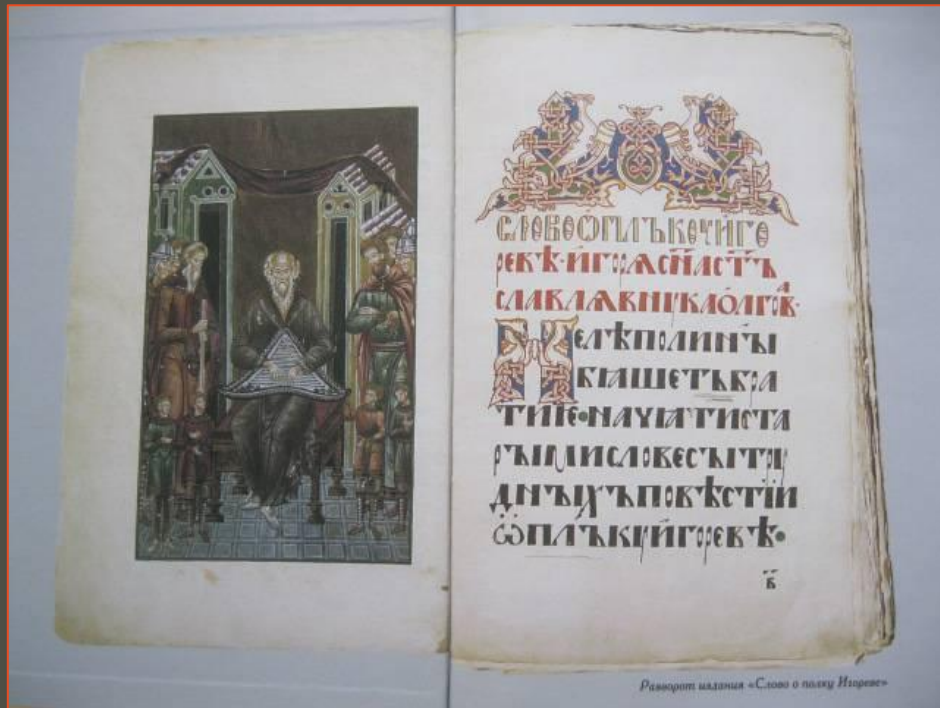 СЛОВОѠПЛЪКꙋИГО
РЕВѢ·ИГОРѦСН҃АСТ҃Ъ
СЛАВЛѦВНꙋКАОЛГОВⷶ·
НЕЛѢПОЛИНЫ
БꙖШЕТЪБРА
ТИѤ·НАЧꙖТИСТА
РЫМИСЛОВЕСЫТРꙋ
ДНЫХЪПОВѢСТІИ
ѠПЛЪКꙋИГОРЕВѢ·
в҃
Разворот издания «Слово о полку Игореве»